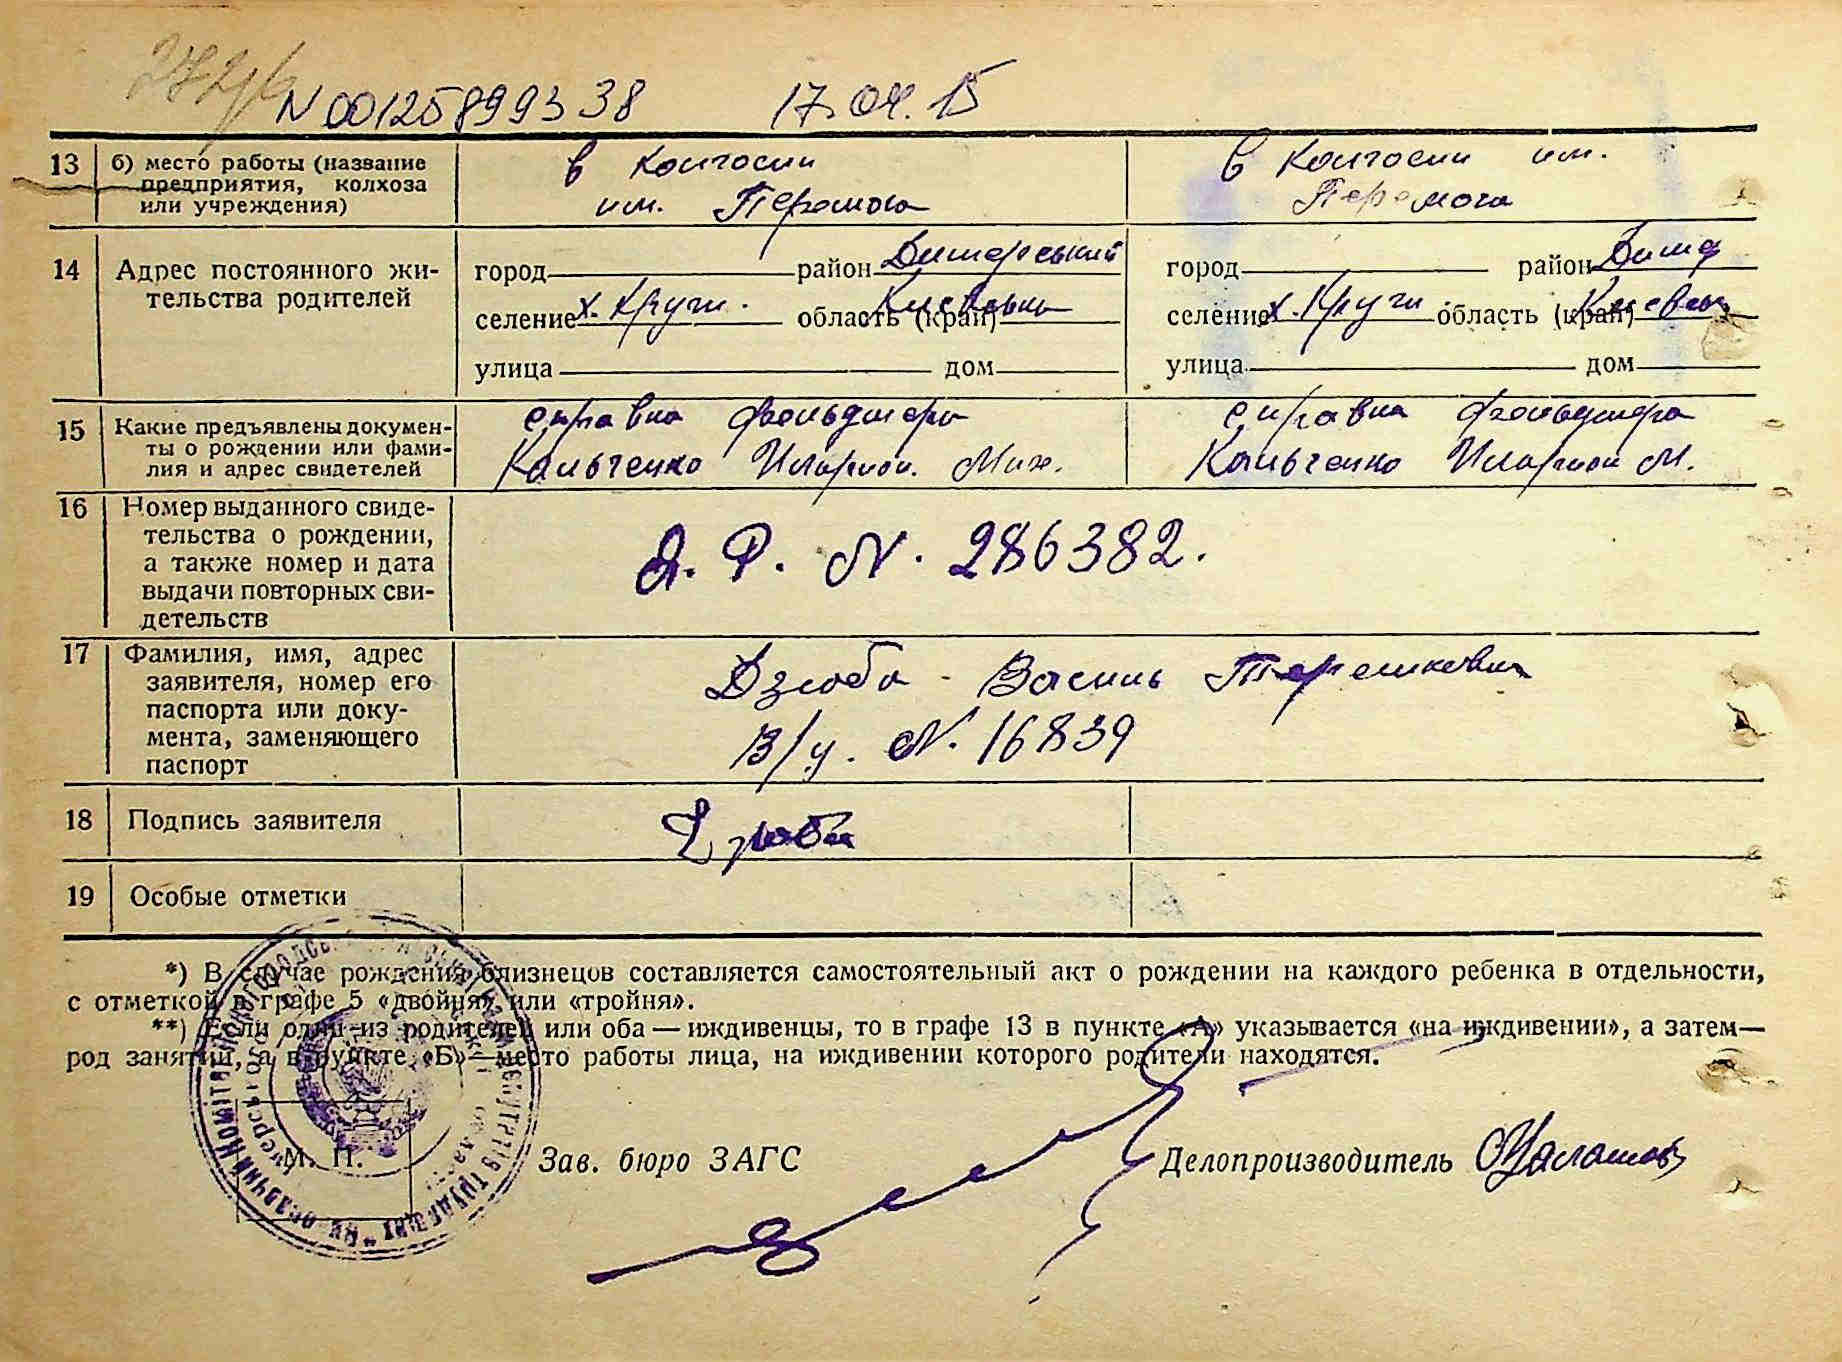 N 00125899338 17.04.15
13 б) место работы (название предприятия, колхоза или учреждения)
в колгоспи им. Перемога
в колгоспи им. Перемога
14 Адрес постоянного жительства родителей
город район Димерський
селение х. Круги. область (край)
улица дом
город район Димер
селение х. Круги область (край)
улица дом
15 Какие предъявлены документы о рождении или фамилия и адрес свидетелей
справка фельдшера
Кальченко Иларион. Мих.
справка фельдшера
Кальченко Иларион М.
16 Номер выданного свидетельства о рождении, а также номер и дата выдачи повторных свидетельств
N. 286382.
17 Фамилия, имя, адрес заявителя, номер его паспорта или документа, заменяющего паспорт
Дзюба Василь Терешкович
В/у. N. 16839
18 Подпись заявителя
Дзюба
19 Особые отметки
*) В случае рождения близнецов составляется самостоятельный акт о рождении на каждого ребенка в отдельности,
с отметкой в графе 5 «двойня» или «тройня».
**) Если один из родителей или оба — иждивенцы, то в графе 13 в пункте «А» указывается «на иждивении», а затем—
род занятий, а в пункте «Б»—место работы лица, на иждивении которого родители находятся.
М. П.
Зав. бюро ЗАГС
Делопроизводитель